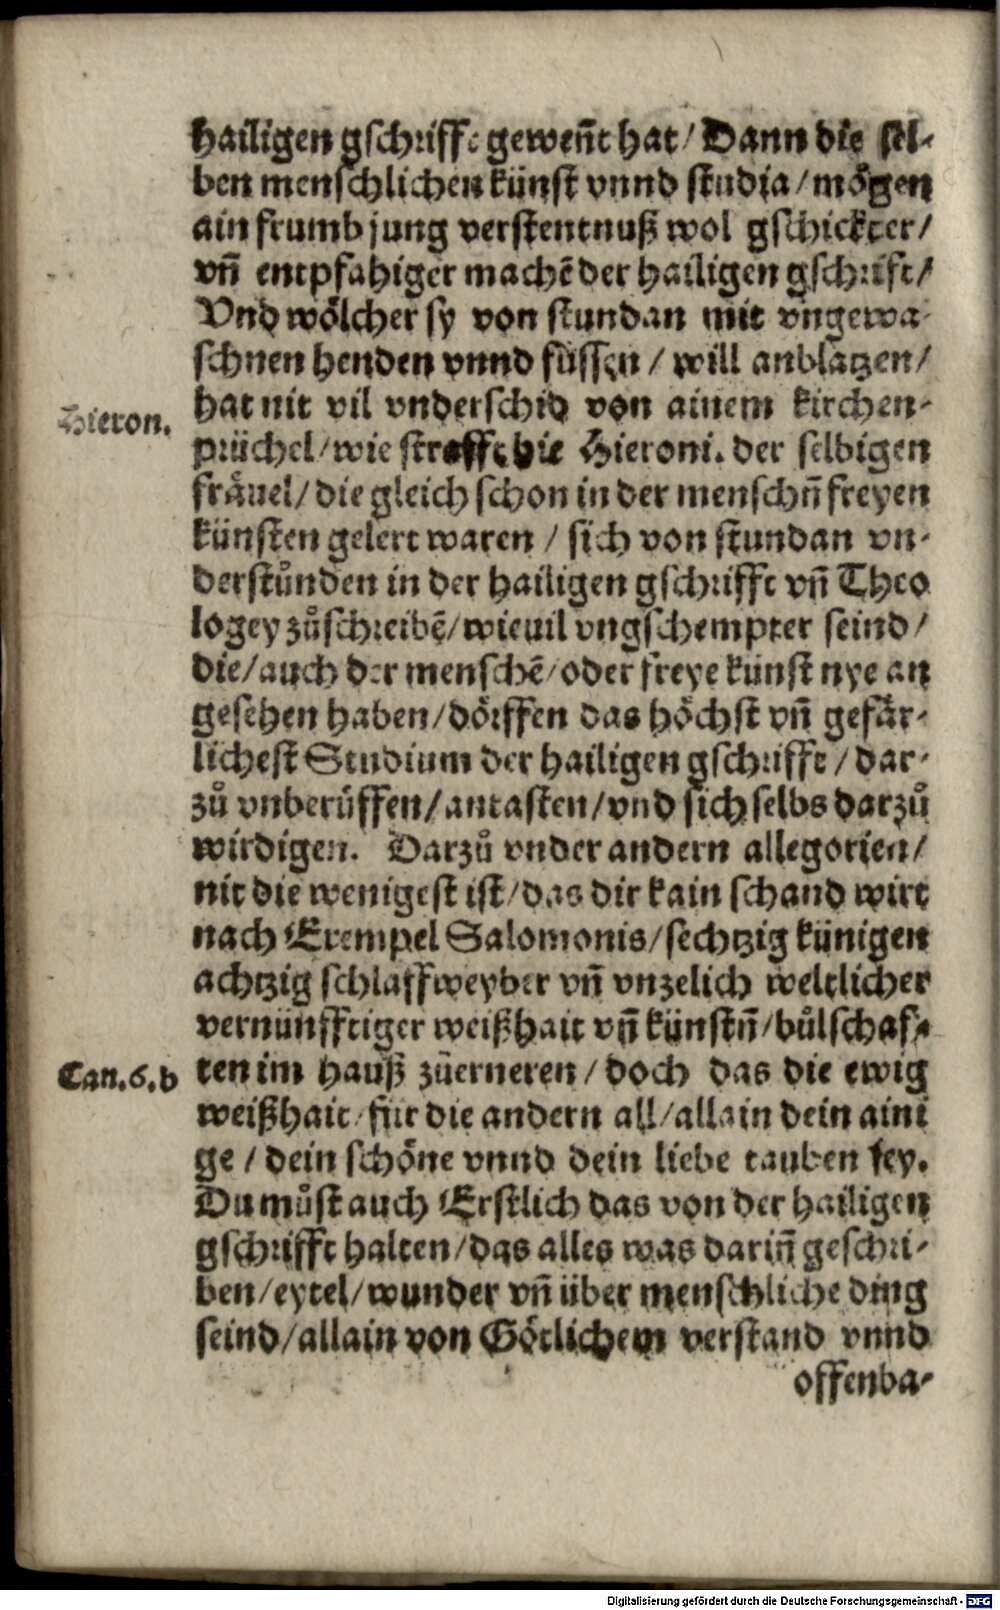 hailigen gschrifft gewent hat/ Dann die sel-
ben menschlichen künst vnnd studia/ mögen
ain frumb jung verstentnuß wol gschickter/
vñ entpfahiger machē der hailigen gschrift/
Vnd wölcher sy von stundan mit vngewa-
schnen henden vnnd füssen/ will anblatzen/
hat nit vil vnderschid von ainem kirchen-
Hieron.
prüchel/ wie strafft hie Hieroni. der selbigen
fräuel/ die gleich schon in der menschñ freyen
künsten gelert waren/ sich von stundan vn-
derstůnden in der hailigen gschrifft vñ Theo
logey zůschreibē/ wieuil vngschempter seind/
die/ auch der menschē/ oder freye künst nye an
gesehen haben/ dörffen das höchst vñ gefär-
lichest Studium der hailigen gschrifft/ dar-
zů vnberüffen/ antasten/ vnd sich selbs darzů
wirdigen. Darzů vnder andern allegorien/
nit die wenigest ist/ das dir kain schand wirt
nach Exempel Salomonis/ sechtzig künigen
achtzig schlaffweyber vñ vnzelich weltlicher
vernünfftiger weißhait vñ künstñ/ bůlschaf-
Can.6.b
ten im hauß zůerneren/ doch das die ewig
weißhait/ für die andern all/ allain dein aini
ge/ dein schöne vnnd dein liebe tauben sey.
Du můst auch Erstlich das von der hailigen
gschrifft halten/ das alles was dariñ geschri-
ben/ eytel/ wunder vñ über menschliche ding
seind/ allain von Götlichem verstand vnnd
offenba-
Digitalisierung gefördert durch die Deutsche Forschungsgemeinschaft - DFG